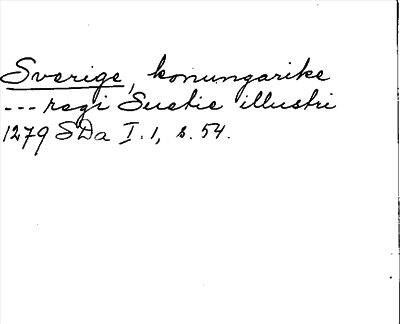 Sverige, konungarike
--- regi Suetie illustri
1279 SDa I:1, s. 54.